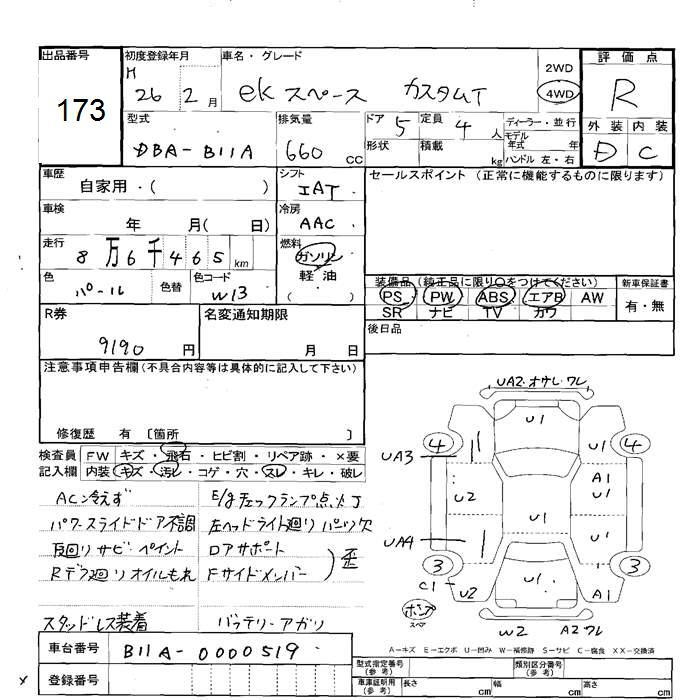 出品番号 初度登録年月 車名・グレード 評価点
173
H 26 2月 ekスペース カスタムT 2WD 4WD R
型式 排気量 ドア 定員 ディーラー・並行 外装 内装
DBA-B11A 660 CC 5 4人 モデル年式 年 D C
形状 積載 kg ハンドル 左・右
車歴 シフト セールスポイント (正常に機能するものに限ります)
自家用・( ) IAT
車検 冷房
年 月( 日) AAC
走行 燃料
8万6千465km ガソリン
色 色替 色コード 軽油
パール W13 ( )
装備品 (純正品に限り○をつけてください) 新車保証書
PS PW ABS エアB AW 有・無
SR ナビ TV カワ
R券 名変通知期限 後日品
9190円 月 日
注意事項申告欄(不具合内容等は具体的に記入して下さい)
修復歴 有 〔箇所 〕
検査員 FW キズ・飛石・ヒビ割・リペア跡・×要
記入欄 内装 キズ・汚レ・コゲ・穴・スレ・キレ・破レ
AC冷えず E/gチェックランプ点灯
パワースライドドア不調 左ヘッドライト廻りパーツ欠
下回りサビ・ペイント ロアサポート
Rデフ廻りオイルもれ Fサイドメンバー 歪
スタッドレス装着 バッテリーアガリ
UA2.オサレ ワレ
U1
4 4
UA3 A1
U2 U1 U1
UA4
3 3
C1 U2 U1 A1
ボンプ スペア
W2 A2ワレ
A-キズ E-エクボ U-凹み W-補修跡 S-サビ C-腐食 XX-交換済
車台番号 B11A-0000519
型式指定番号(参考) 類別区分番号(参考)
登録番号 車庫証明用(参考) 長さ cm 幅 cm 高さ cm